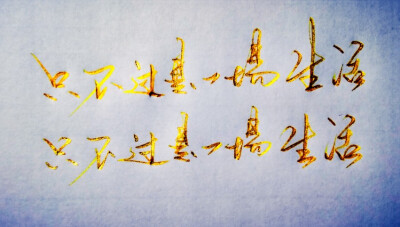 只不过是一场生活
只不过是一场生活